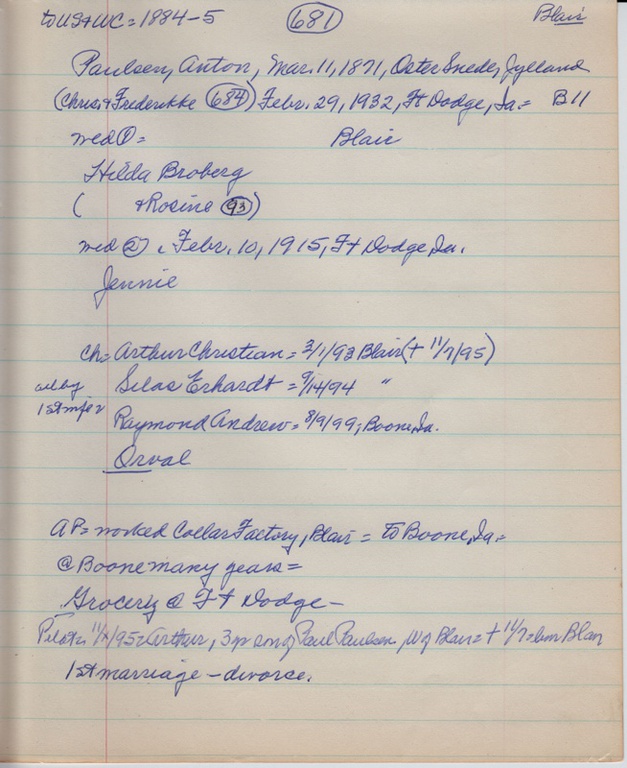 to US & WC = 1884-5 (681) Blair
Paulsen, Anton, Mar. 11, 1871, Oster Snede, Jylland
(Chris. & Frederikke (684)) Febr. 29, 1932, Ft Dodge, Ia. = B11
med ① = Blair
Hilda Broberg
( & Rosine (93))
med ② = Febr. 10, 1915, Ft Dodge, Ia.
Jennie
ch = Arthur Christian = 2/1/93 Blair († 11/7/95)
Silas Erhardt = 9/14/94 "
all by
1st
Raymond Andrew = 8/9/99, Boone, Ia.
Orval
AP = worked Collar Factory, Blair = to Boone, Ia. =
@ Boone many years =
Grocery @ Ft Dodge -
Pilot = 95 = Arthur, son of Paul Paulsen, W of Blair = † 11/7 = Blair
1st marriage - divorce.